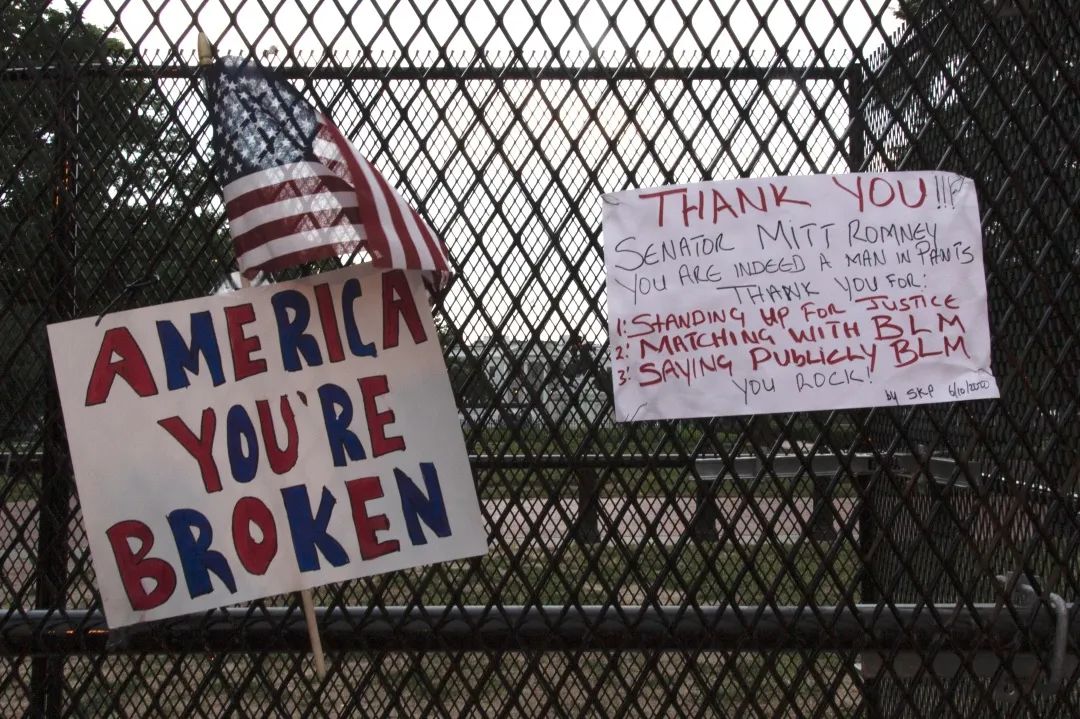 AMERICA
YOU'RE
BROKEN
THANK YOU!!!
SENATOR MITT ROMNEY
YOU ARE INDEED A MAN IN PANTS
THANK YOU FOR:
1: STANDING UP FOR JUSTICE
2: MATCHING WITH BLM
3: SAYING PUBLICLY BLM
YOU ROCK!
by SKP 6/10/2020